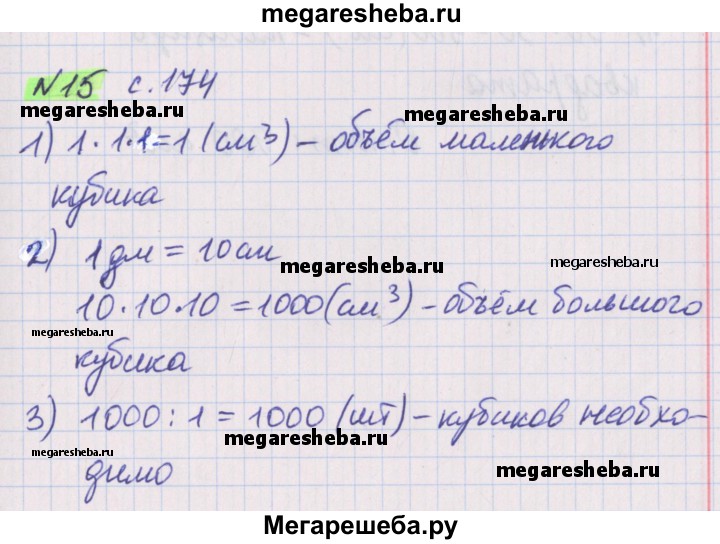 megaresheba.ru
№15 с.174
megaresheba.ru
megaresheba.ru
1) 1·1·1=1 (см³) – объём маленького
кубика
2) 1 дм = 10 см
megaresheba.ru
megaresheba.ru
10·10·10 = 1000 (см³) – объём большого
megaresheba.ru
megaresheba.ru
кубика
3) 1000 : 1 = 1000 (шт) – кубиков необхо-
megaresheba.ru
megaresheba.ru
megaresheba.ru
димо
Мегарешеба.ру